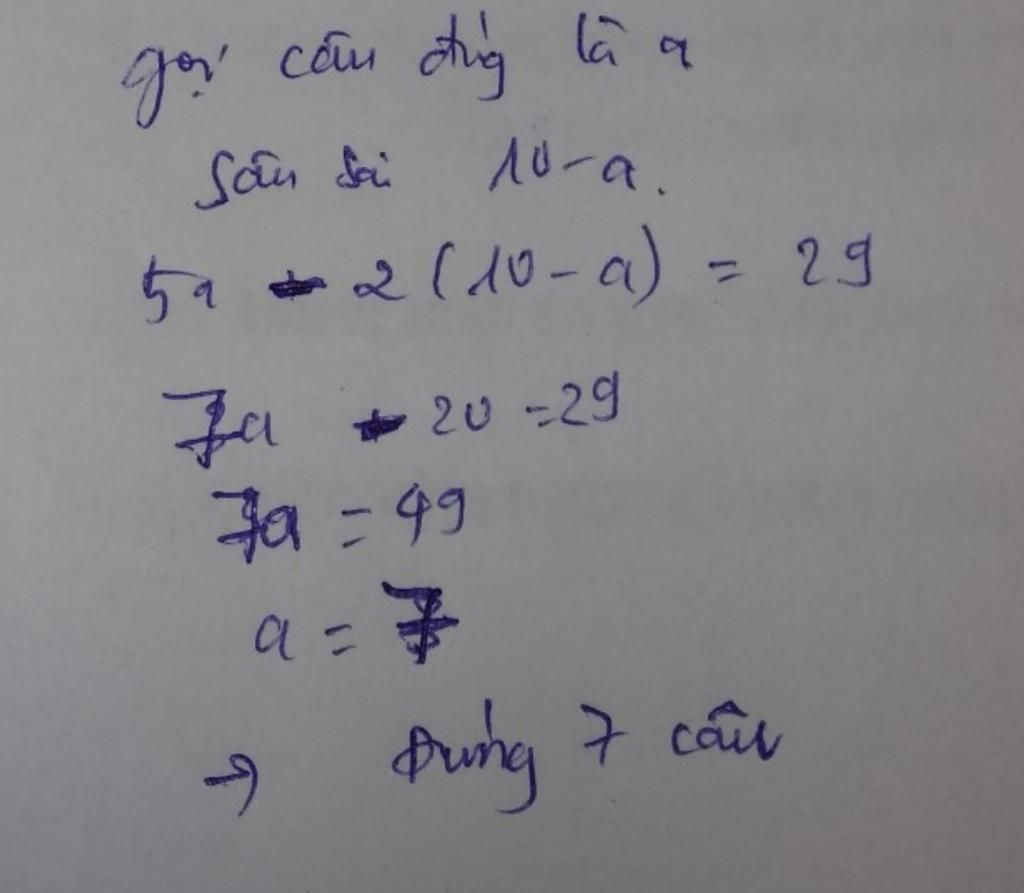 gọi câu đúng là a
Số câu sai 10-a.
5a - 2(10-a) = 29
7a - 20 = 29
7a = 49
a = 7
→ Đúng 7 câu